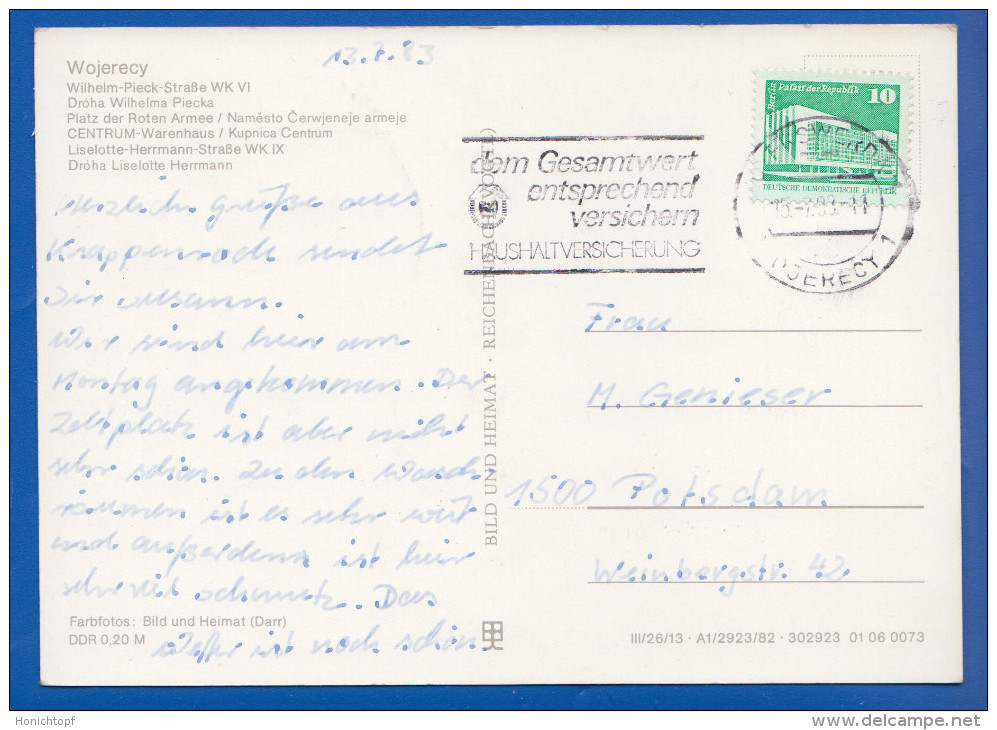 13.7.83
Wojerecy
Wilhelm-Pieck-Straße WK VI
Dróha Wilhelma Piecka
Platz der Roten Armee / Naměsto Čerwjeneje armeje
CENTRUM-Warenhaus / Kupnica Centrum
Liselotte-Herrmann-Straße WK IX
Dróha Liselotte Herrmann
Herzliche grüße aus
Knappenrode sendet
Dir Susann.
Wir sind hier am
Montag angekommen. Der
Zeltplatz ist aber nicht
sehr schön. Zu den Wasch-
räumen ist es sehr weit
und außerdem ist hier
sehr viel schmutz. Das
Wetter ist noch schön.
Farbfotos: Bild und Heimat (Darr)
DDR 0,20 M
BILD UND HEIMAT · REICHENBACH (VOGTL)
dem Gesamtwert
entsprechend
versichern
HAUSHALTVERSICHERUNG
Berlin Palast der Republik
10
DEUTSCHE DEMOKRATISCHE REPUBLIK
13.-7.83.-11
WOJERECY 1
Frau
M. Genieser
1500 Potsdam
Weinbergstr. 42
III/26/13 · A1/2923/82 · 302923 01 06 0073
Honichtopf
www.delcampe.net